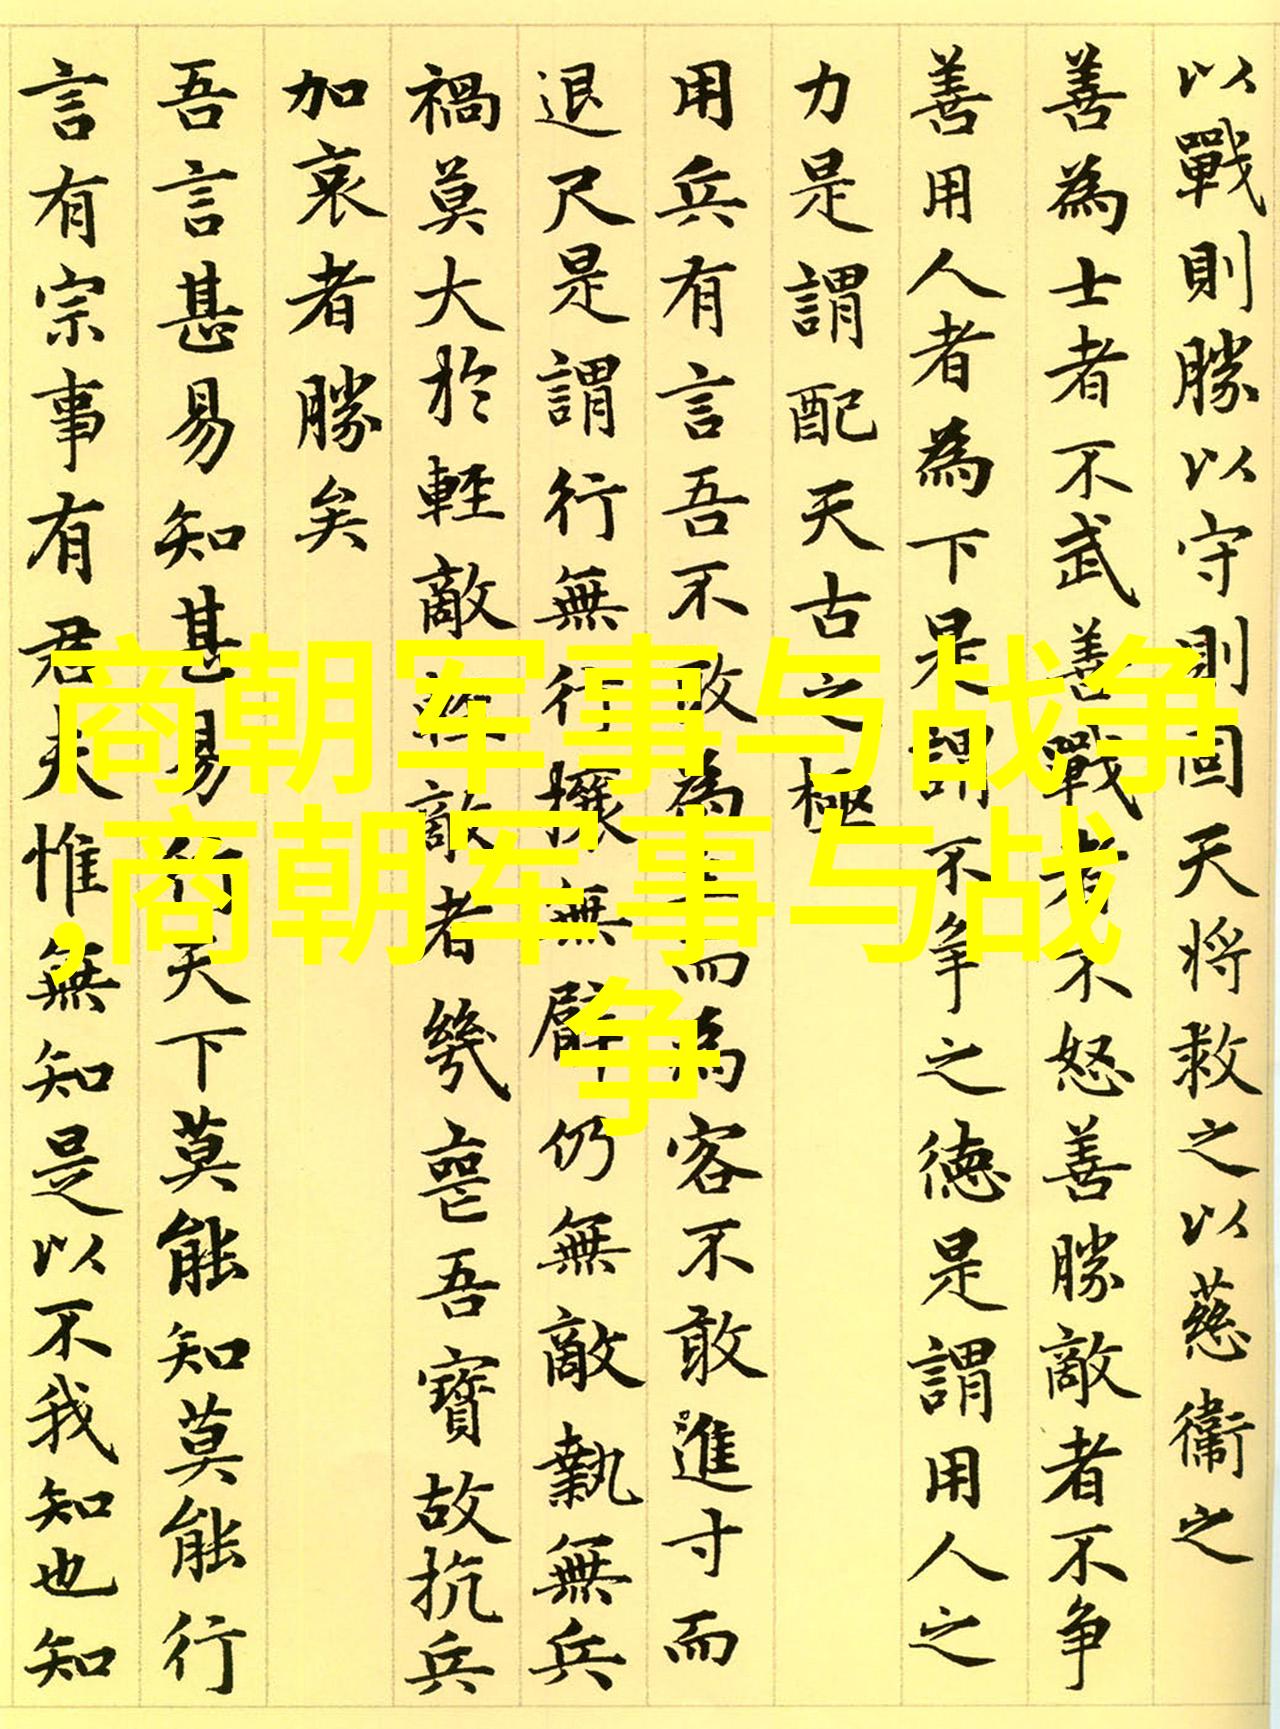 以戰則勝以守則固天將救之以慈衛之
善為士者不武善戰者不怒善勝敵者不争
善用人者為下是謂不争之德是謂用人之
力是謂配天古之極
用兵有言吾不敢為主而為客不敢進寸而
退尺是謂行無行攘無臂仍無敵執無兵
禍莫大於輕敵輕敵者幾喪吾寶故抗兵
加哀者勝矣
吾言甚易知甚易行天下莫能知莫能行
言有宗事有君夫惟無知是以不我知也知
商朝军事与战争
,商朝军事与战
争